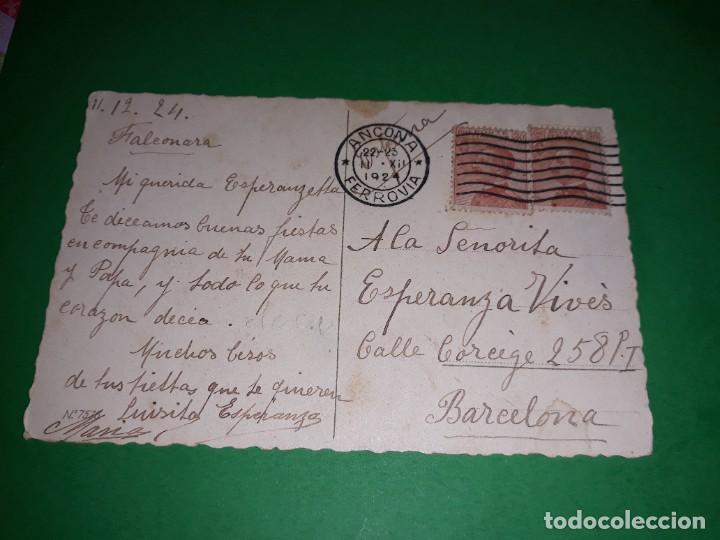 11.12.24.
Falconara
Mi querida Esperanzetta
Te diceamos buenas fiestas
en compagnia de tu Mama
y Papa, y todo lo que tu
corazon decea.
Muchos besos
de tus tiettas que te quieren
Luisita Esperanza
Maria
Nº 757
ANCONA
22-23
11·XII
1924
FERROVIA
A la Señorita
Esperanza Vivès
Calle Corcége 258 P. I
Barcelona
todocoleccion